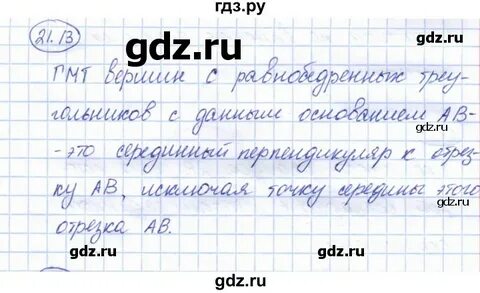 гдз.ру
21.13
gdz.ru gdz.ru
ГМТ вершин с равнобедренных треу-
гольников с данным основанием АВ-
gdz.ru gdz.ru
-это серединный перпендикуляр к отрез-
ку АВ, исключая точку середины этого
gdz.ru gdz.ru
отрезка АВ.
gdz.ru gdz.ru